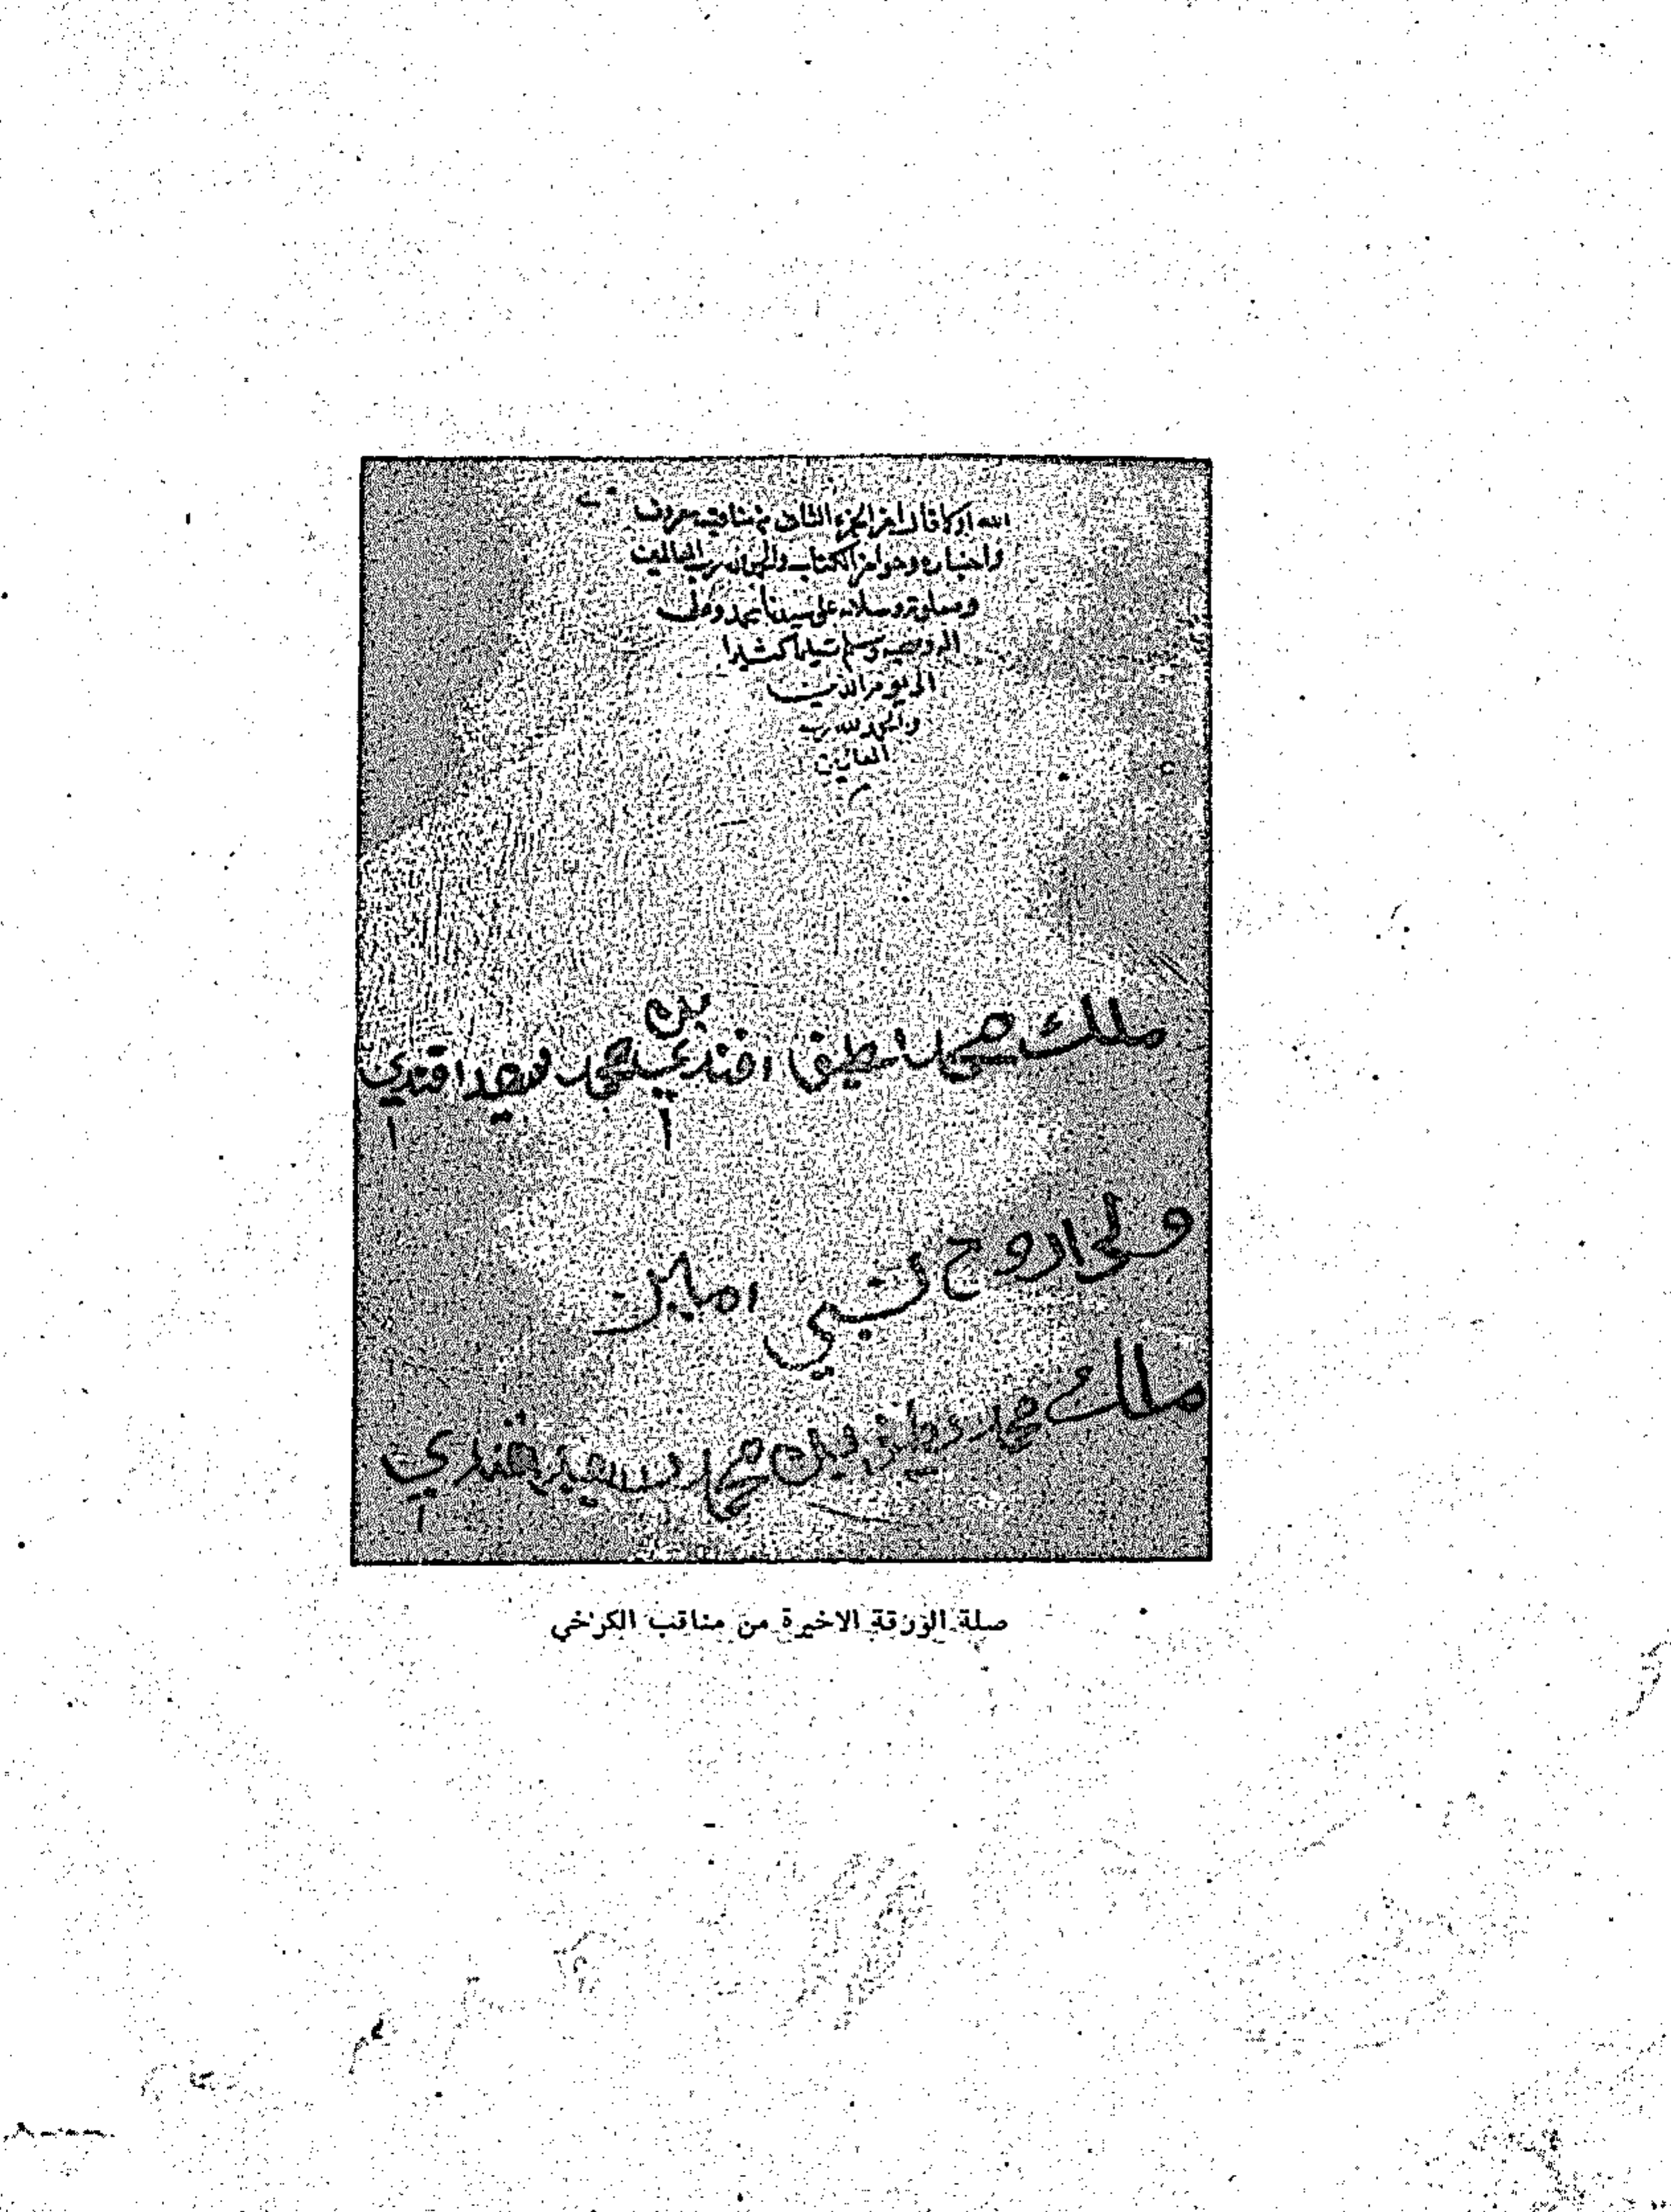 الله او كما قال اخر الجزء الثاني من مناقب معروف
واخباره وهو اخر الكتاب والحمد لله رب العالمين
وصلوته وسلامه على سيدنا محمد وعلى
اله وصحبه وسلم تسليما كثيرا
الى يوم الدين
والحمد لله رب
العالمين
ملك محمد لطيف افندي بن محمد سعيد افندي
امين
ملك محمد بن محمد سعيد افندي
صلة الورقة الاخيرة من مناقب الكرخي